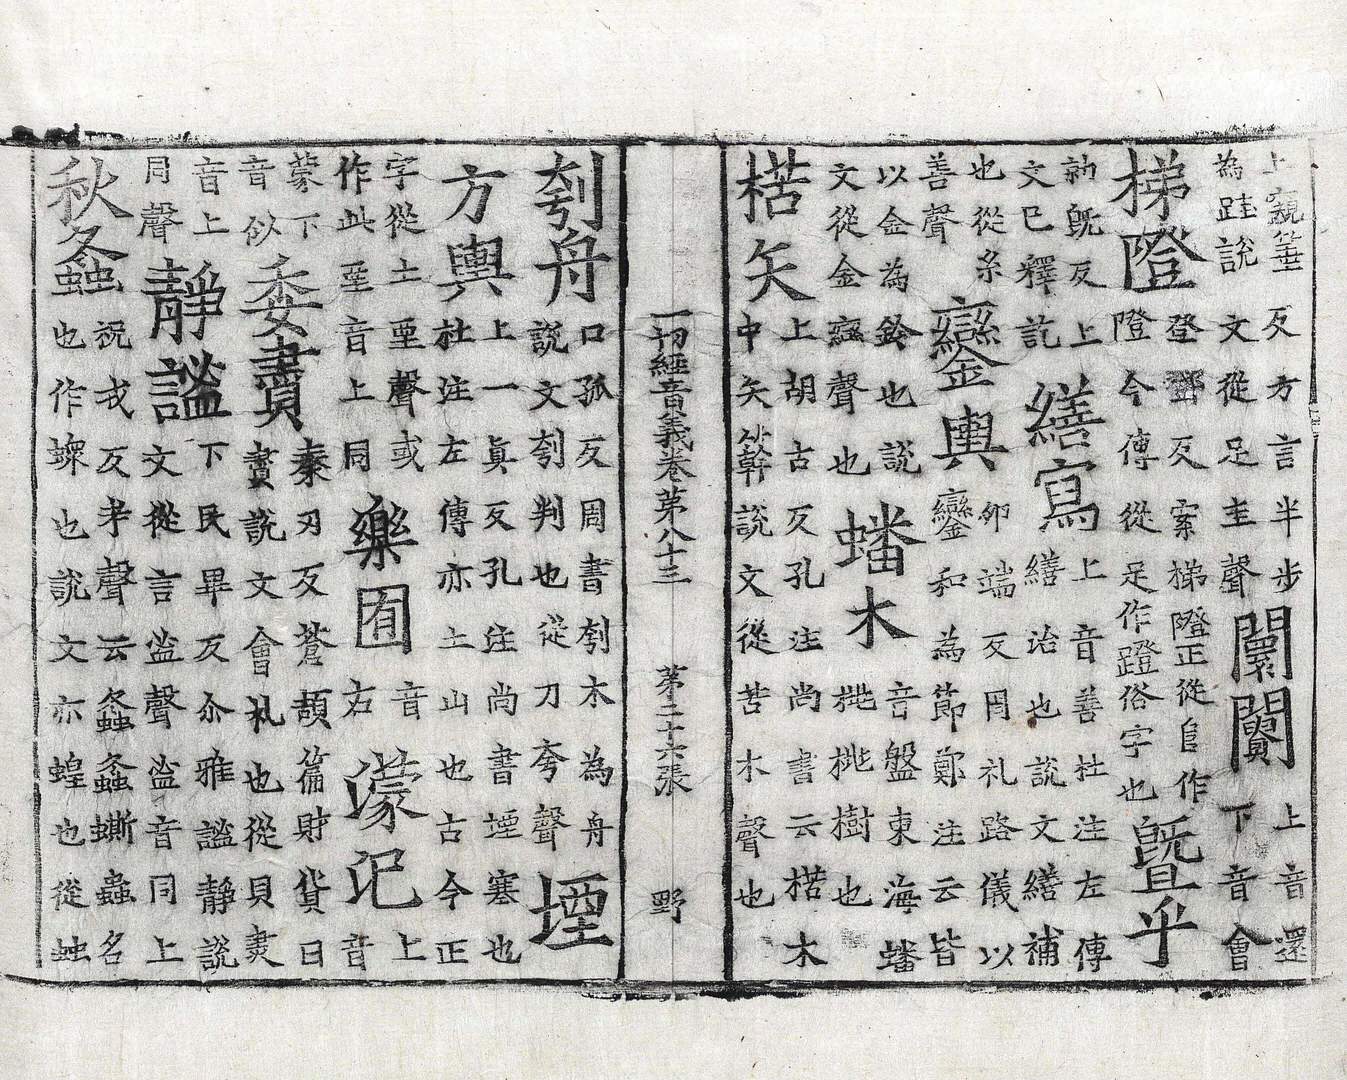 上窺箠反方言半步
為跬說文從足圭聲
闤闠
上音還
下音會
梯隥
登鄧反案梯隥正從𨸏作
隥今傳從足作蹬俗字也
曁乎
訙旣反上
文已釋訖
繕寫
上音善杜注左傳
繕治也說文繕補
也從糸
善聲
鑾輿
卵端反周礼路儀以
鑾和為節鄭注云皆
以金為鈴也說
文從金䜌聲也
蟠木
音盤東海蟠
桃桃樹也
楛矢
上胡古反孔注尚書云楛木
中矢簳說文從苦木聲也
一切經音義卷第八十三 第二十六張 野
刳舟
口孤反周書刳木為舟
說文刳判也從刀夸聲
堙
方輿
上一真反孔注尚書堙塞也
杜注左傳亦土山也古今正
字從土垔聲或
作此垔音上同
藥囿
音
右
濛汜
上
音
蒙下
音似
委賮
秦刃反蒼頡篇財貨曰
賮說文會礼也從貝㶳
音上
同聲
靜謐
下民畢反尒雅謐靜說
文從言㿽聲㿽音同上
秋螽
祝戎反考聲云螽螽蟖蟲名
也作也說文亦蝗也從䖵